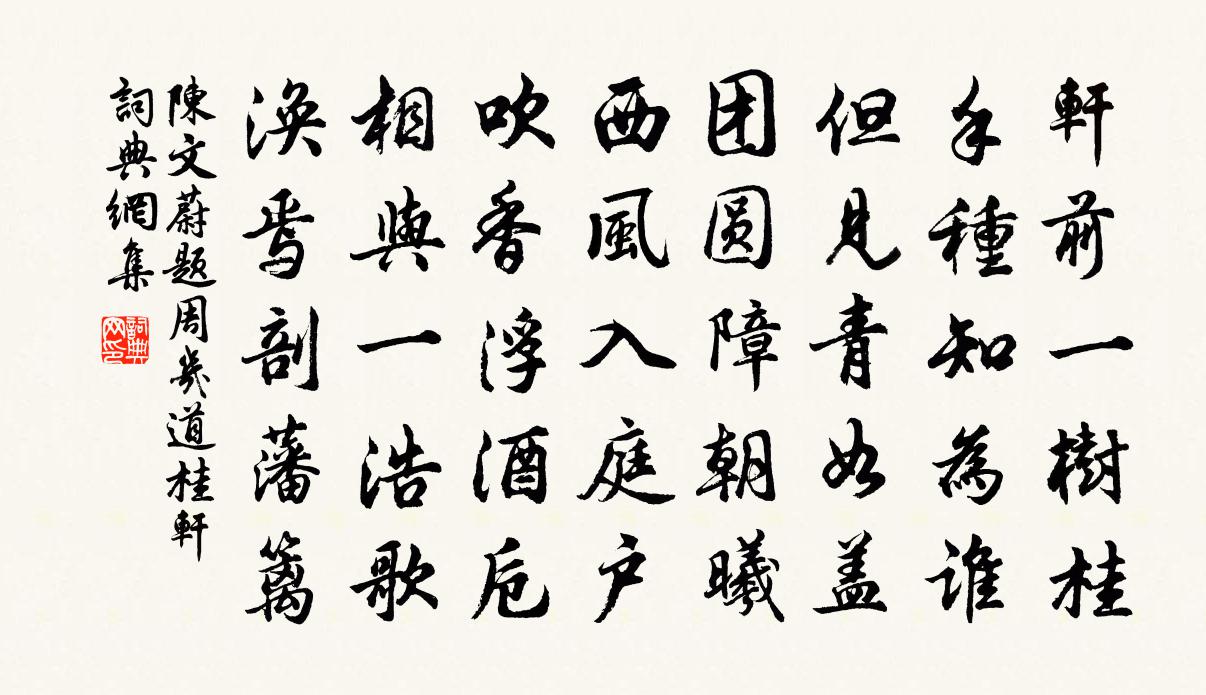 軒前一樹桂
手種知為誰
但見青如盖
团圆障朝曦
西風入庭户
吹香浮酒卮
相與一浩歌
渙焉剖藩篱
陳文蔚題周幾道桂軒
詞典網集
詞典网印